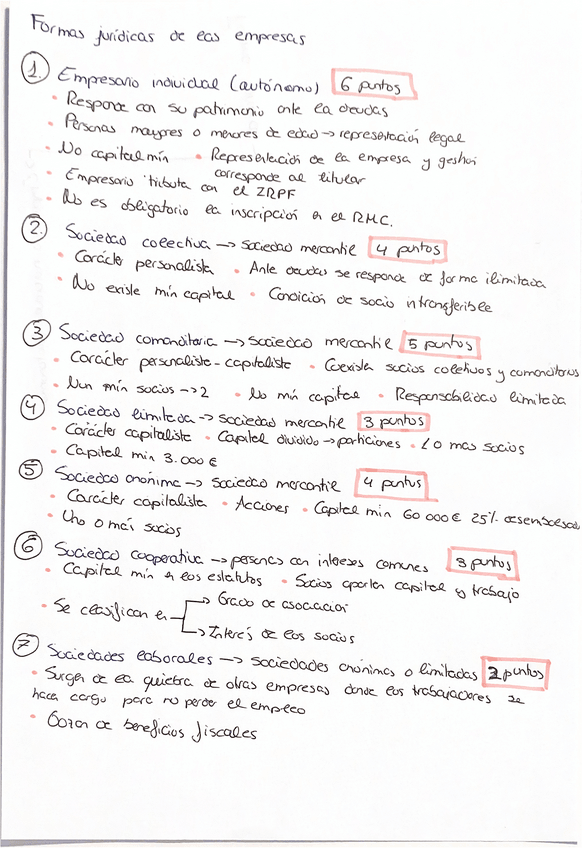 Formas jurídicas de las empresas
1. Empresario individual (autónomo) 6 puntos
• Responde con su patrimonio ante la deudas
• Personas mayores o menores de edad → representación legal
• No capital mín • Representación de la empresa y gestión corresponde al titular
• Empresario tributa con el IRPF
• No es obligatorio la inscripción en el RMC.
2. Sociedad colectiva → sociedad mercantil 4 puntos
• Carácter personalista • Ante deudas se responde de forma ilimitada
• No existe mín capital • Condición de socio intransferible
3 Sociedad comanditaria → sociedad mercantil 5 puntos
• Carácter personalista-capitalista • Coexisten socios coletivos y comanditarios
• Num mín socios → 2 • No mín capital • Responsabilidad limitada
4 Sociedad limitada → sociedad mercantil 3 puntos
• Carácter capitalista • Capital dividido → particiones • 1 o mas socios
• Capital min 3.000 €
5 Sociedad anónima → sociedad mercantil 4 puntos
• Carácter capitalista • Acciones • Capital min 60 000 € 25%
• Uno o más socios
6 Sociedad cooperativa → personas con intereses comunes 3 puntos
• Capital mín en los estatutos • Socios aportan capital y trabajo
• Se clasifican en → Grado de asociación
→ Interés de los socios
7 Sociedades laborales → sociedades anónimas o limitadas 2 puntos
• Surgen de la quiebra de otras empresas donde los trabajadores se
hacen cargo para no perder el empleo
• Gozan de beneficios fiscales